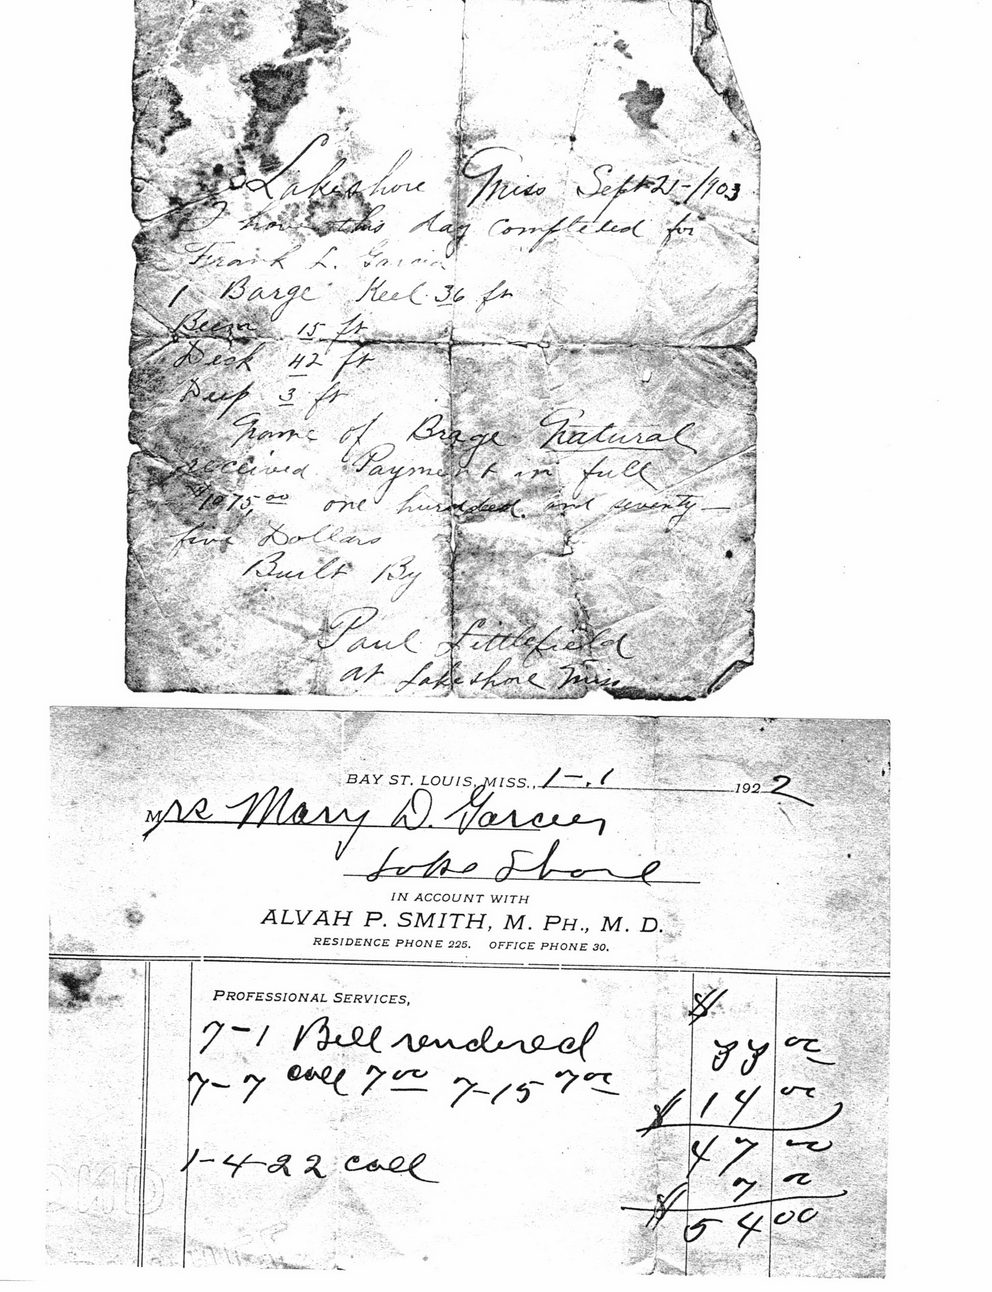 Lakeshore Miss Sept 21-1903
I have this day completed for
Frank L. Garcia
1 Barge Keel 36 ft
Beem 15 ft
Deck 42 ft
Deep 3 ft
Name of Brage Natural
received Payment in full
$1075,00 one hundded. and seventy-
five Dollars
Built By
Paul Littlefield
at Lakeshore Miss
BAY ST. LOUIS, MISS., 1-.1 1922
Mrs Mary D. Garcia
Lake Shore
IN ACCOUNT WITH
ALVAH P. SMITH, M. PH., M. D.
RESIDENCE PHONE 225. OFFICE PHONE 30.
PROFESSIONAL SERVICES,
$
7-1 Bell rendered 33 00
7-7 call 7 00 7-15 7 00 $ 14 00
47 00
1-4-22 call $ 7 00
54 00